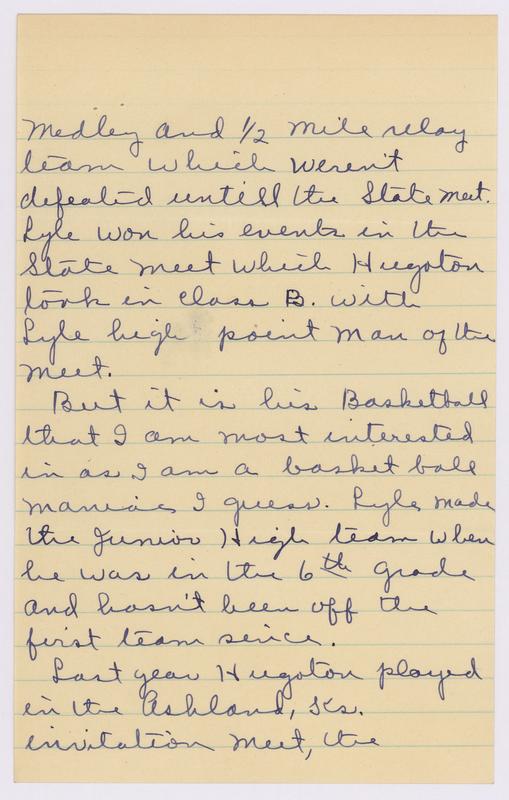 Medley and 1/2 mile relay
team which weren't
defeated untill the State meet.
Lyle won his events in the
State meet which Hugoton
took in class B. with
Lyle high point man of the
meet.
But it is his Basketball
that I am most interested
in as I am a basket ball
maniac I guess. Lyle made
the Junior High team when
he was in the 6th grade
and hasn't been off the
first team since.
Last year Hugoton played
in the Ashland, Ks.
invitation meet, the